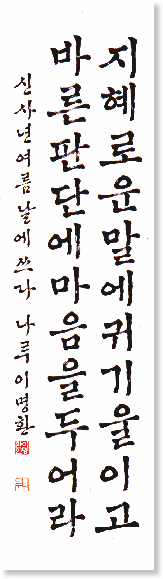 지혜로운말에귀기울이고
바른판단에마음을두어라
신사년여름날에쓰다 나루이명환